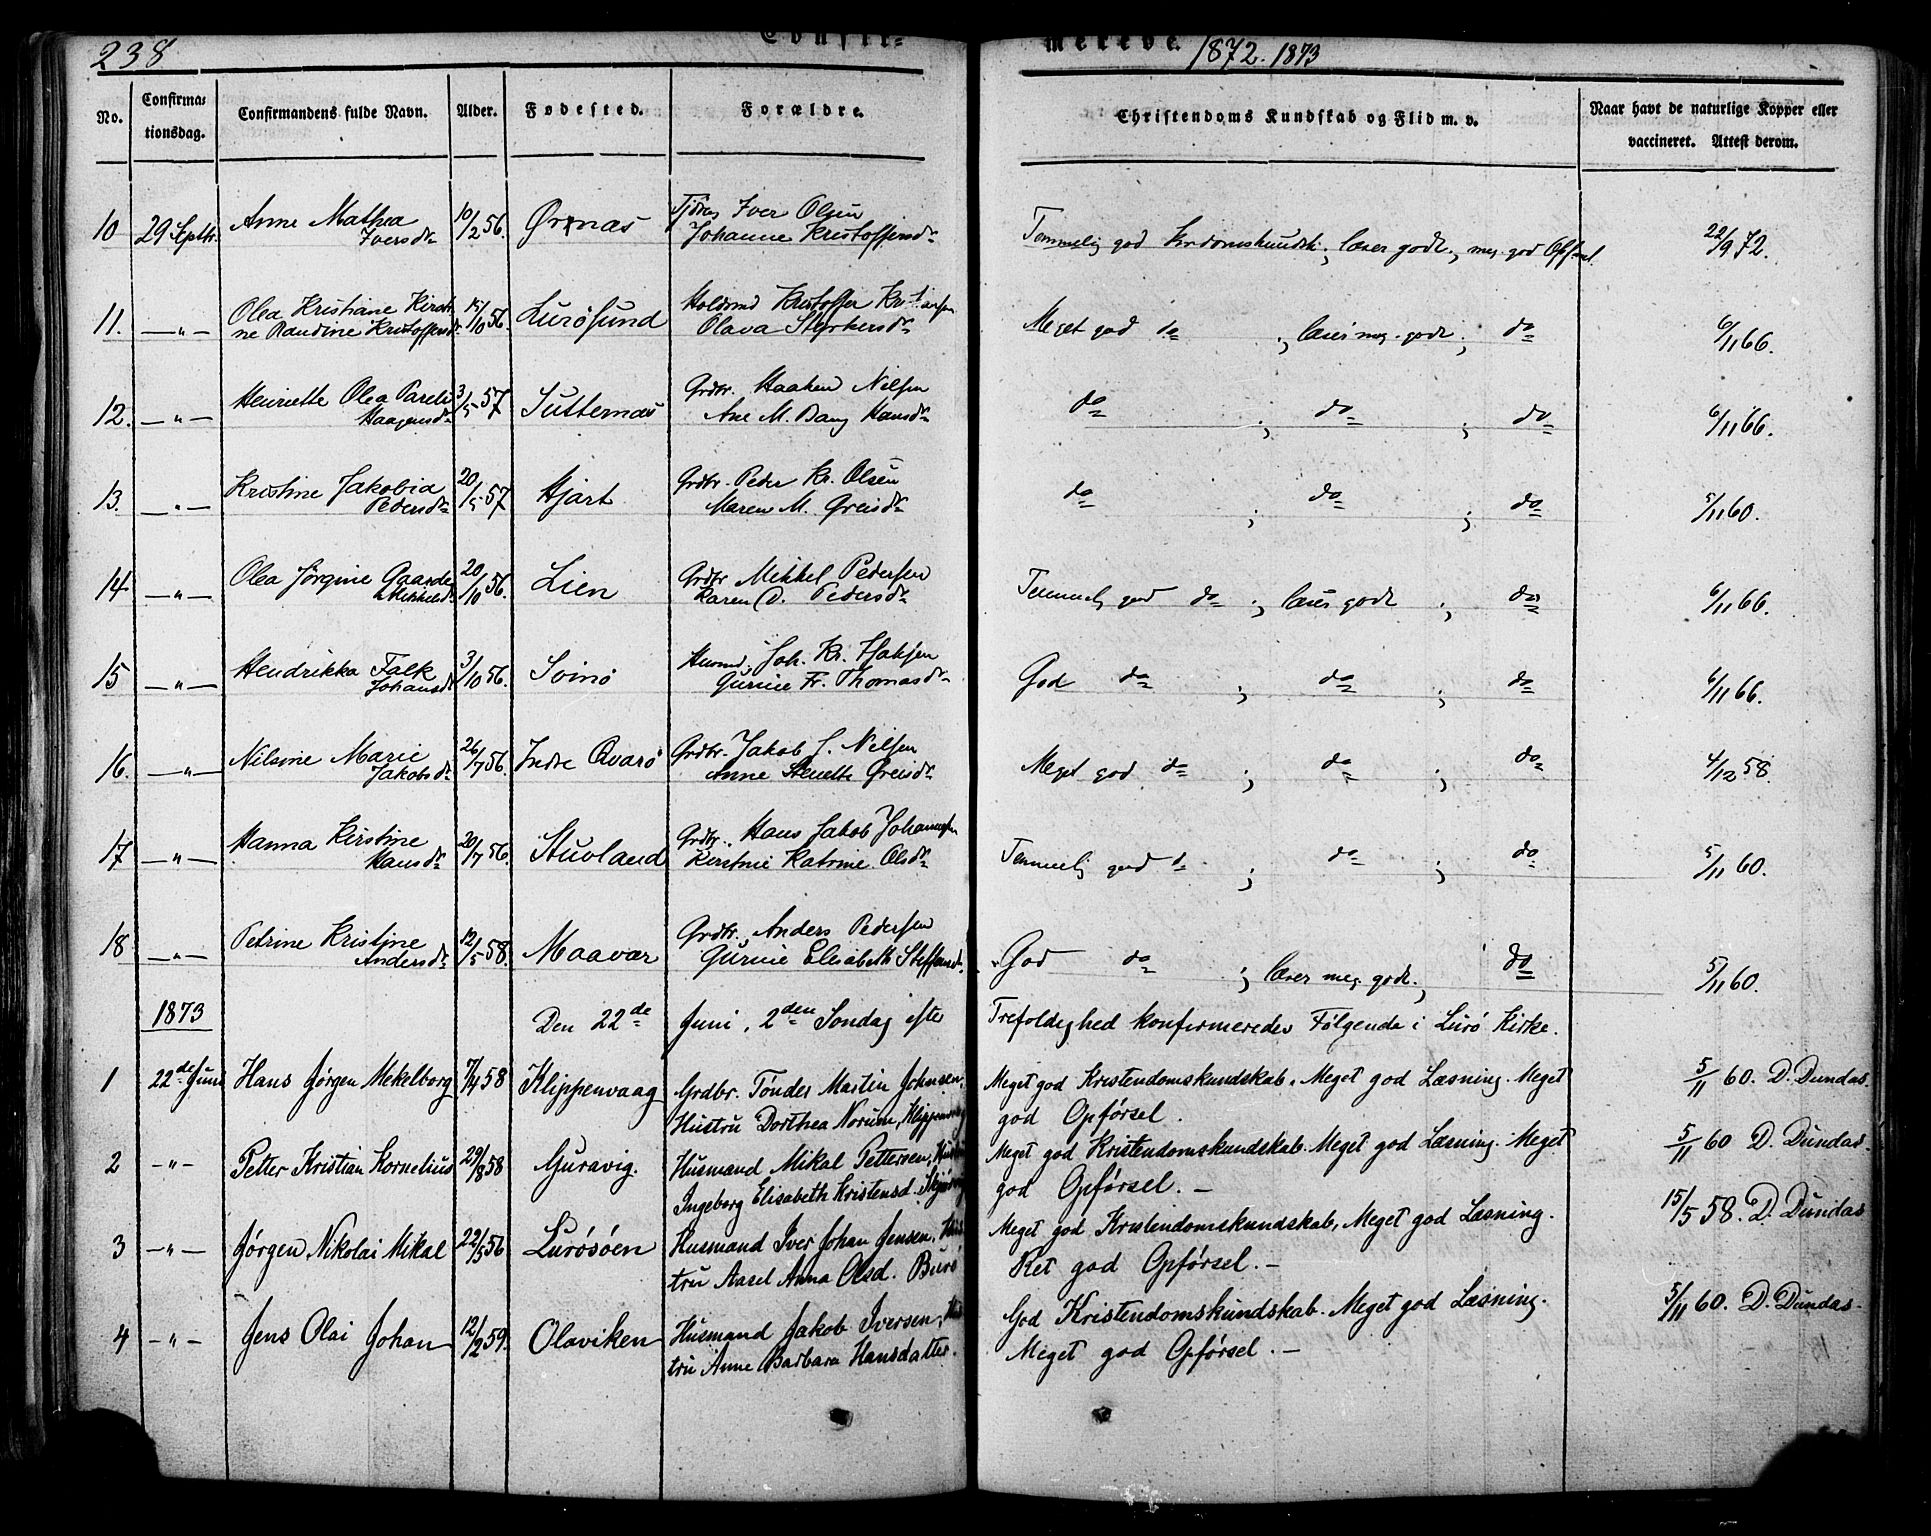 238
Confir-
No.
Confirma-
tionsdag.
Confirmandens fulde Navn.
Alder.
Fødested.
Forældre.
10 29 Septbr. Anne Mathea
Iversdr 10/2 56. Ørnæs Iver Olsen
Johanne Kristoffersdr
11. —"— Olea Kristiane Kirsti-
ne Randine Kristoffersdr 15/10 56. Lurøsund Kristoffer Kristiansen
Olava Styrkersdr
12. —"— Henriette Olea Pareli
Haagensdr 3/5 57 Sutternæs Grdbr. Haaken Nilsen
Ane M. Bang Hansdr
13. —"— Kristine Jakobia
Pedersdr 20/5 57 Hjart Grdbr. Peder Kr. Olsen
Maren M. Greisdr
14 —"— Olea Jørgine Gaarder
Mikkelsdr 20/10 56. Lien Grdbr Mikkel Pedersen
Karen D. Pedersdr
15 —"— Hendrikka Falk
Johansdr 3/10 56. Svinø Husmd. Joh. Kr.
Gurine Fr. Thomasdr
16. —"— Nilsine Marie
Jakobsdr 26/7 56. Indre Qvarø Grdbr. Jakob J. Nilsen
Anne Greisdr
17 —"— Hanna Kirstine
Hansdr 20/7 56. Stuvland Grdbr. Hans Jakob Johannesen
Kirstine Katrine Olsdr
18 —"— Petrine Kristine
Andersdr 12/5 58. Maavær Grdbr. Anders Pedersen
Gurine Elisabeth Steffensdr
1873 Den 22de Juni, 2den Søndag efter
1 22de Juni Hans Jørgen Mekelborg 7/4 58 Klippenvaag Grdbr. Tønder Martin Johnsen,
Hustru Dorthea Norum, Klippenvaag
2 —"— Petter Kristian Kornelius 29/8 58 Guravig. Husmand Mikal Pettersen, Hustru
Ingeborg Elisabeth Kristensd.
3 —"— Jørgen Nikolai Mikal 22/5 56 Lurøsøen Husmand Iver Johan Jensen, Hus-
tru Aasel Anna Olsd. Burø
4 —"— Jens Olai Johan 12/2 59. Olaviken Husmand Jakob Iversen, Hus-
tru Anne Barbara Hansdatter.
merede. 1872. 1873
Christendoms Kundskab og Flid m. v.
Naar havt de naturlige Kopper eller
vaccineret. Attest derom.
Temmelig god Krdomskundsk; læser godt; meg. god Opførsel. 22/9 72.
Meget god do ; læser meg. godt; do 6/11 66.
do ; do ; do 6/11 66.
do ; do ; do 5/11 60.
Temmelig god do ; læser godt ; do 6/11 66.
God do ; do ; do 6/11 66.
Meget god do ; do ; do 4/12 58.
Temmelig god do ; do ; do 5/11 60.
God do ; læser meg. godt. ; do 5/11 60.
Trefoldighed konfirmeredes Følgende i Lurø Kirke.
Meget god Kristendomskundskab. Meget god Læsning. Meget 5/11 60. D. Dundas.
god Opførsel.
Meget god Kristendomskundskab. Meget god Læsning. Meget 5/11 60 D. Dundas.
god Opførsel. —
Meget god Kristendomskundskab, Meget god Læsning. 15/5 58. D. Dundas
Ret god Opførsel. —
God Kristendomskundskab. Meget god Læsning. 5/11 60. D. Dundas.
Meget god Opførsel. —